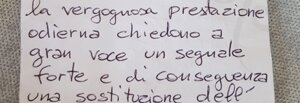 la vergognosa prestazione
odierna chiedono a
gran voce un segnale
forte e di conseguenza
una sostituzione dell'